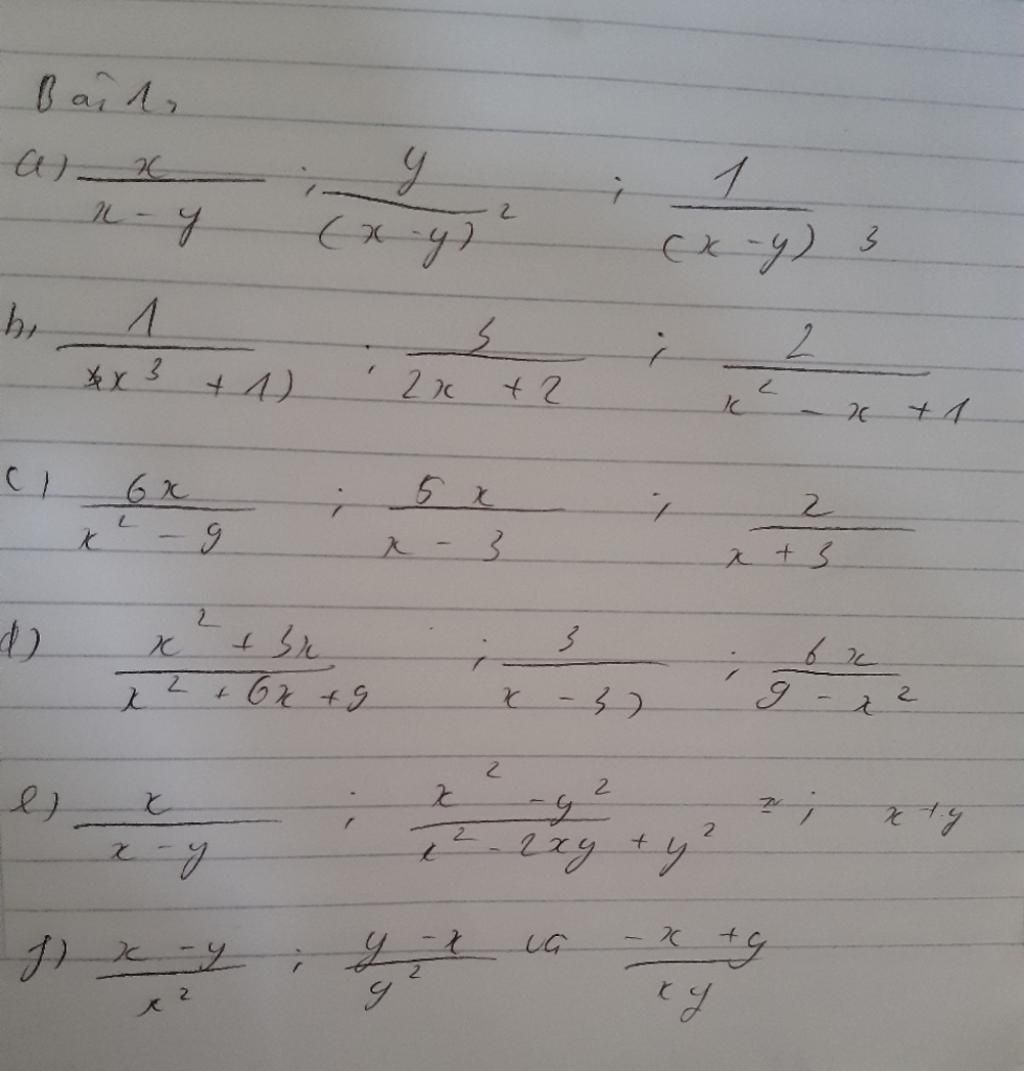 Bài 1,
a) x/(x - y) ; y/(x - y)² ; 1/(x - y)³
b, 1/(x³ + 1) ; 3/(2x + 2) ; 2/(x² - x + 1)
c) 6x/(x² - 9) ; 5x/(x - 3) ; 2/(x + 3)
d) (x² + 3x)/(x² + 6x + 9) ; 3/(x - 3) ; 6x/(9 - x²)
e) x/(x - y) ; (x² - y²)/(x² - 2xy + y²) ; x + y
f) (x - y)/x² ; (y - x)/y² và (-x + y)/(xy)